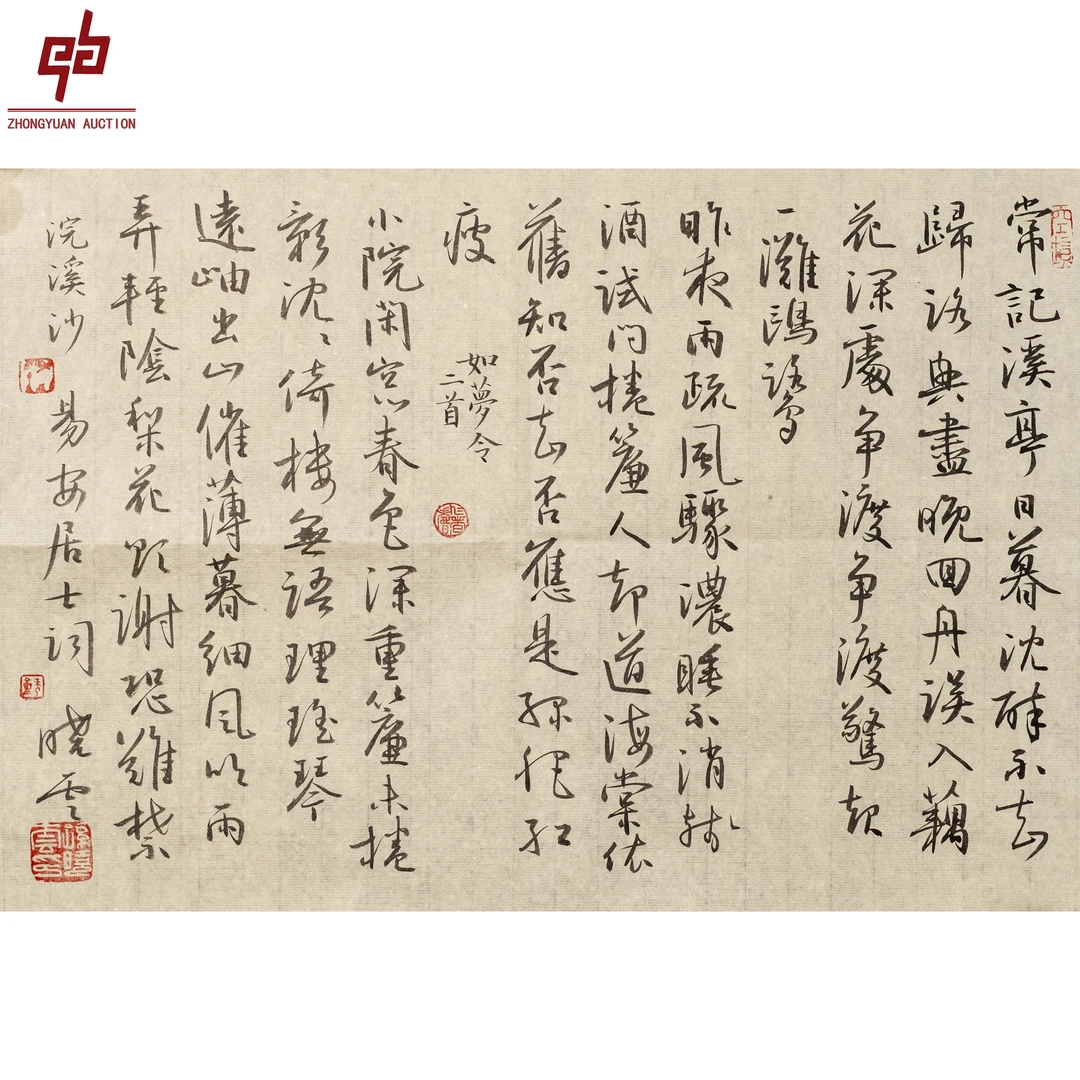 ZHONGYUAN AUCTION
常記溪亭日暮沈醉不知
歸路興盡晚回舟誤入藕
花深處爭渡爭渡驚起
一灘鷗鷺
昨夜雨疏風驟濃睡不消殘
酒試問捲簾人却道海棠依
舊知否知否應是綠肥紅
瘦
如夢令
二首
小院閑窗春色深重簾未捲
影沈〻倚樓無語理瑤琴
遠岫出山催薄暮細風吹雨
弄輕陰梨花欲謝恐難禁
浣溪沙
易安居士詞
曉雲
孫曉雲印